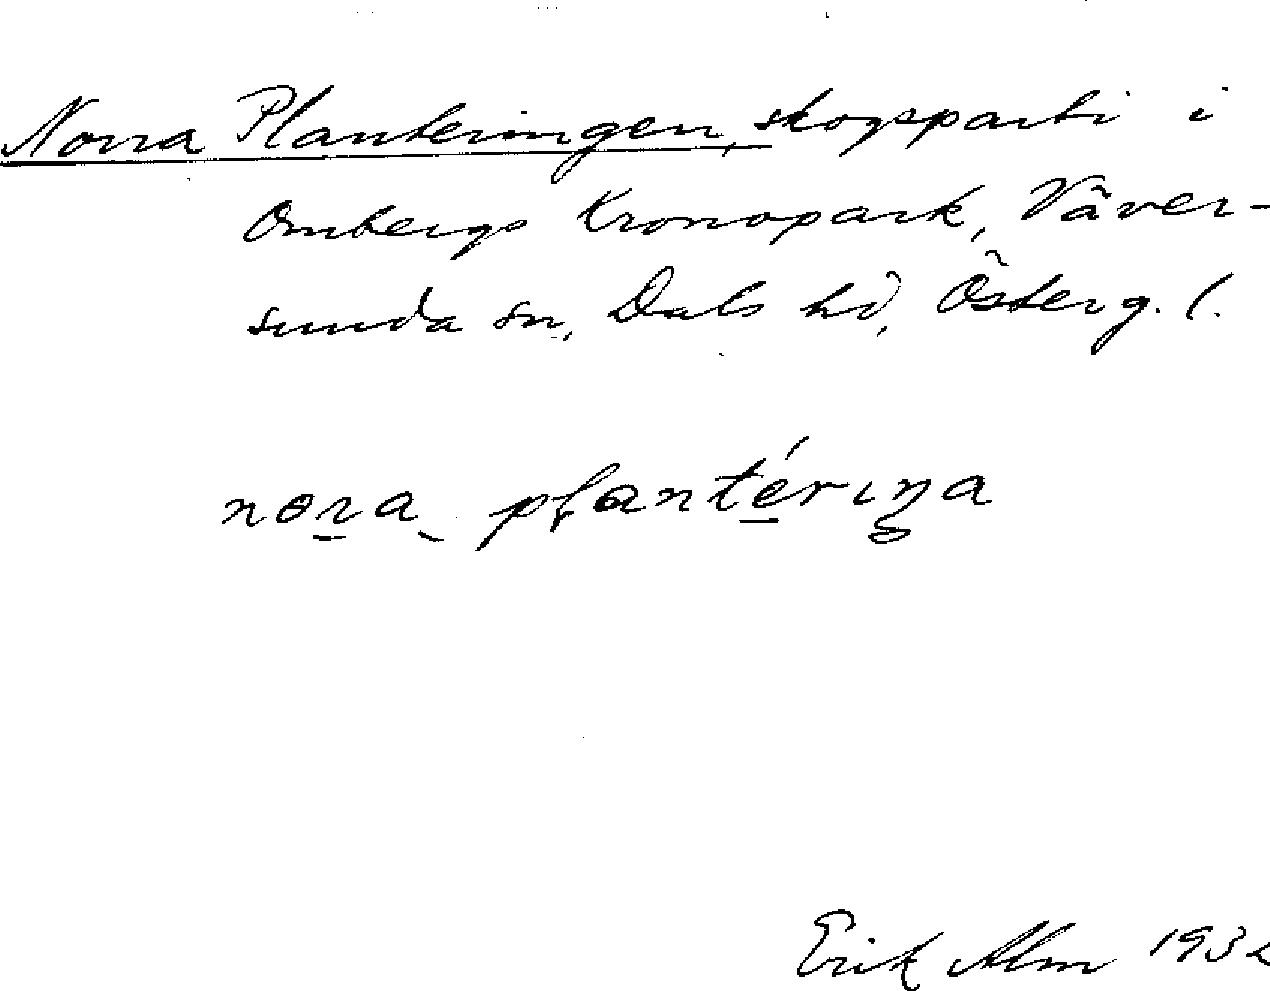 Norra Planteringen, skogsparti i
Ombergs Kronopark, Väver-
sunda sn, Dals hd, Österg. l.
nora plantériŋa
Erik Alm 1932